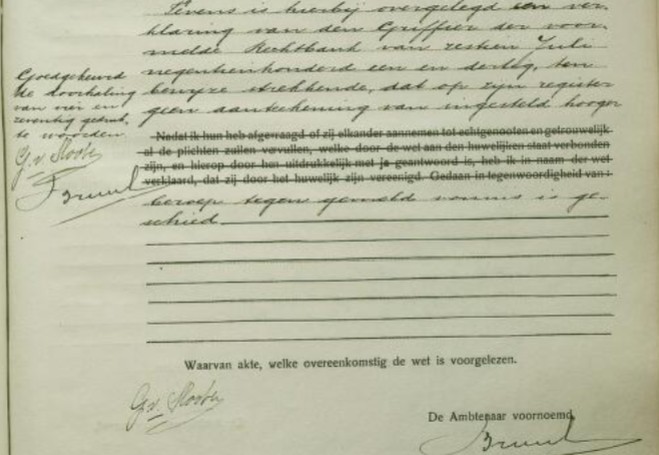 Tevens is hierbij overgelegd een ver-
klaring van den Griffier der voor-
melde Rechtbank van zestien Juli
negentienhonderd een en dertig, ten
bewijze strekkende, dat op zijn register
geen aanteekening van ingesteld hooger
Nadat ik hun heb afgevraagd of zij elkander aannemen tot echtgenooten en getrouwelijk
al de plichten zullen vervullen, welke door de wet aan den huwelijken staat verbonden
zijn, en hierop door hen uitdrukkelijk met ja geantwoord is, heb ik in naam der wet
verklaard, dat zij door het huwelijk zijn vereenigd. Gedaan in tegenwoordigheid van:
beroep tegen gemeld vonnis is ge-
schied
Goedgekeurd
de doorhaling
van vier en
zeventig gedruk-
te woorden
G. v.
Waarvan akte, welke overeenkomstig de wet is voorgelezen.
G. v.
De Ambtenaar voornoemd,